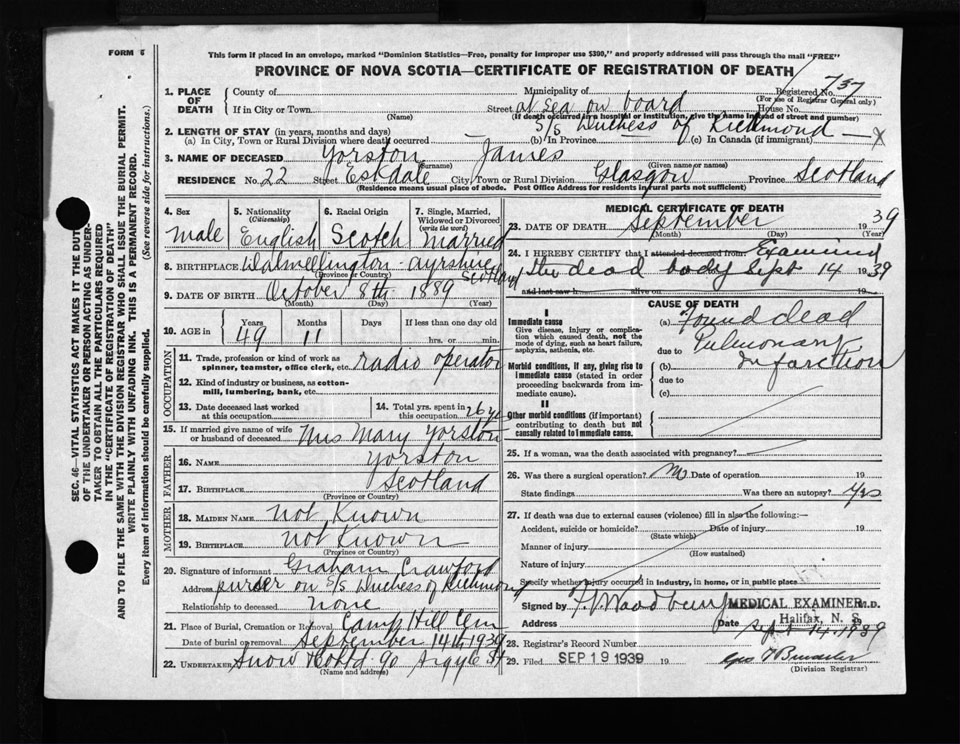 FORM 6
This form if placed in an envelope, marked "Dominion Statistics—Free, penalty for improper use $300," and properly addressed will pass through the mail "FREE"
PROVINCE OF NOVA SCOTIA—CERTIFICATE OF REGISTRATION OF DEATH
SEC. 46—VITAL STATISTICS ACT MAKES IT THE DUTY
OF THE UNDERTAKER OR PERSON ACTING AS UNDER-
TAKER TO OBTAIN ALL THE PARTICULARS REQUIRED
IN THE "CERTIFICATE OF REGISTRATION OF DEATH"
AND TO FILE THE SAME WITH THE DIVISION REGISTRAR WHO SHALL ISSUE THE BURIAL PERMIT.
WRITE PLAINLY WITH UNFADING INK. THIS IS A PERMANENT RECORD.
Every item of information should be carefully supplied. (See reverse side for instructions.)
1. PLACE OF DEATH County of Municipality of Registered No. 737
(For use of Registrar General only)
If in City or Town (Name) Street at sea on board House No.
(If death occurred in a hospital or institution, give the name instead of street and number)
S/S Duchess of Richmond — X
2. LENGTH OF STAY (in years, months and days)
(a) In City, Town or Rural Division where death occurred — (b) In Province (c) In Canada (if immigrant)
3. NAME OF DECEASED Yorston James
(Surname) (Given name or names)
RESIDENCE No. 22 Street Eskdale City, Town or Rural Division Glasgow Province Scotland
(Residence means usual place of abode. Post Office Address for residents in rural parts not sufficient)
4. Sex Male
5. Nationality (Citizenship) English
6. Racial Origin Scotch
7. Single, Married, Widowed or Divorced (write the word) Married
8. BIRTHPLACE Dalmellington - Ayrshire Scotland
(Province or Country)
9. DATE OF BIRTH October 8th 1889
(Month) (Day) (Year)
10. AGE in Years 49 Months 11 Days If less than one day old hrs. or min.
OCCUPATION
11. Trade, profession or kind of work as spinner, teamster, office clerk, etc. radio operator
12. Kind of industry or business, as cotton-mill, lumbering, bank, etc.
13. Date deceased last worked at this occupation
14. Total yrs. spent in this occupation 26 ys
15. If married give name of wife or husband of deceased Mrs Mary Yorston
FATHER
16. Name Yorston
17. Birthplace Scotland
(Province or Country)
MOTHER
18. Maiden Name not Known
19. Birthplace not Known
(Province or Country)
20. Signature of informant Graham Crawford
Address purser on S/S Duchess of Richmond
Relationship to deceased none
21. Place of Burial, Cremation or Removal Camp Hill Cem
Date of burial or removal September 14th 1939
22. Undertaker Snow & Co Ltd 90 Argyle St
(Name and address)
MEDICAL CERTIFICATE OF DEATH
23. DATE OF DEATH September 1939
(Month) (Day) (Year)
24. I HEREBY CERTIFY that I attended deceased from Examined
the dead body Sept 14 1939
and last saw h alive on 19
CAUSE OF DEATH
I
Immediate cause
Give disease, injury or complication which caused death, not the mode of dying, such as heart failure, asphyxia, asthenia, etc.
(a) Found dead
due to Pulmonary
Morbid conditions, if any, giving rise to immediate cause (stated in order proceeding backwards from immediate cause).
(b) Infarction
due to
(c)
II
Other morbid conditions (if important) contributing to death but not causally related to immediate cause.
25. If a woman, was the death associated with pregnancy?
26. Was there a surgical operation? No Date of operation 19
State findings Was there an autopsy? Yes
27. If death was due to external causes (violence) fill in also the following:—
Accident, suicide or homicide? Date of injury 19
(State which)
Manner of injury
(How sustained)
Nature of injury
Specify whether injury occurred in industry, in home, or in public place
Signed by Woodbury MEDICAL EXAMINER M.D.
Halifax, N. S.
Address Date Sept 14, 1939
28. Registrar's Record Number
29. Filed SEP 19 1939 19
(Division Registrar)